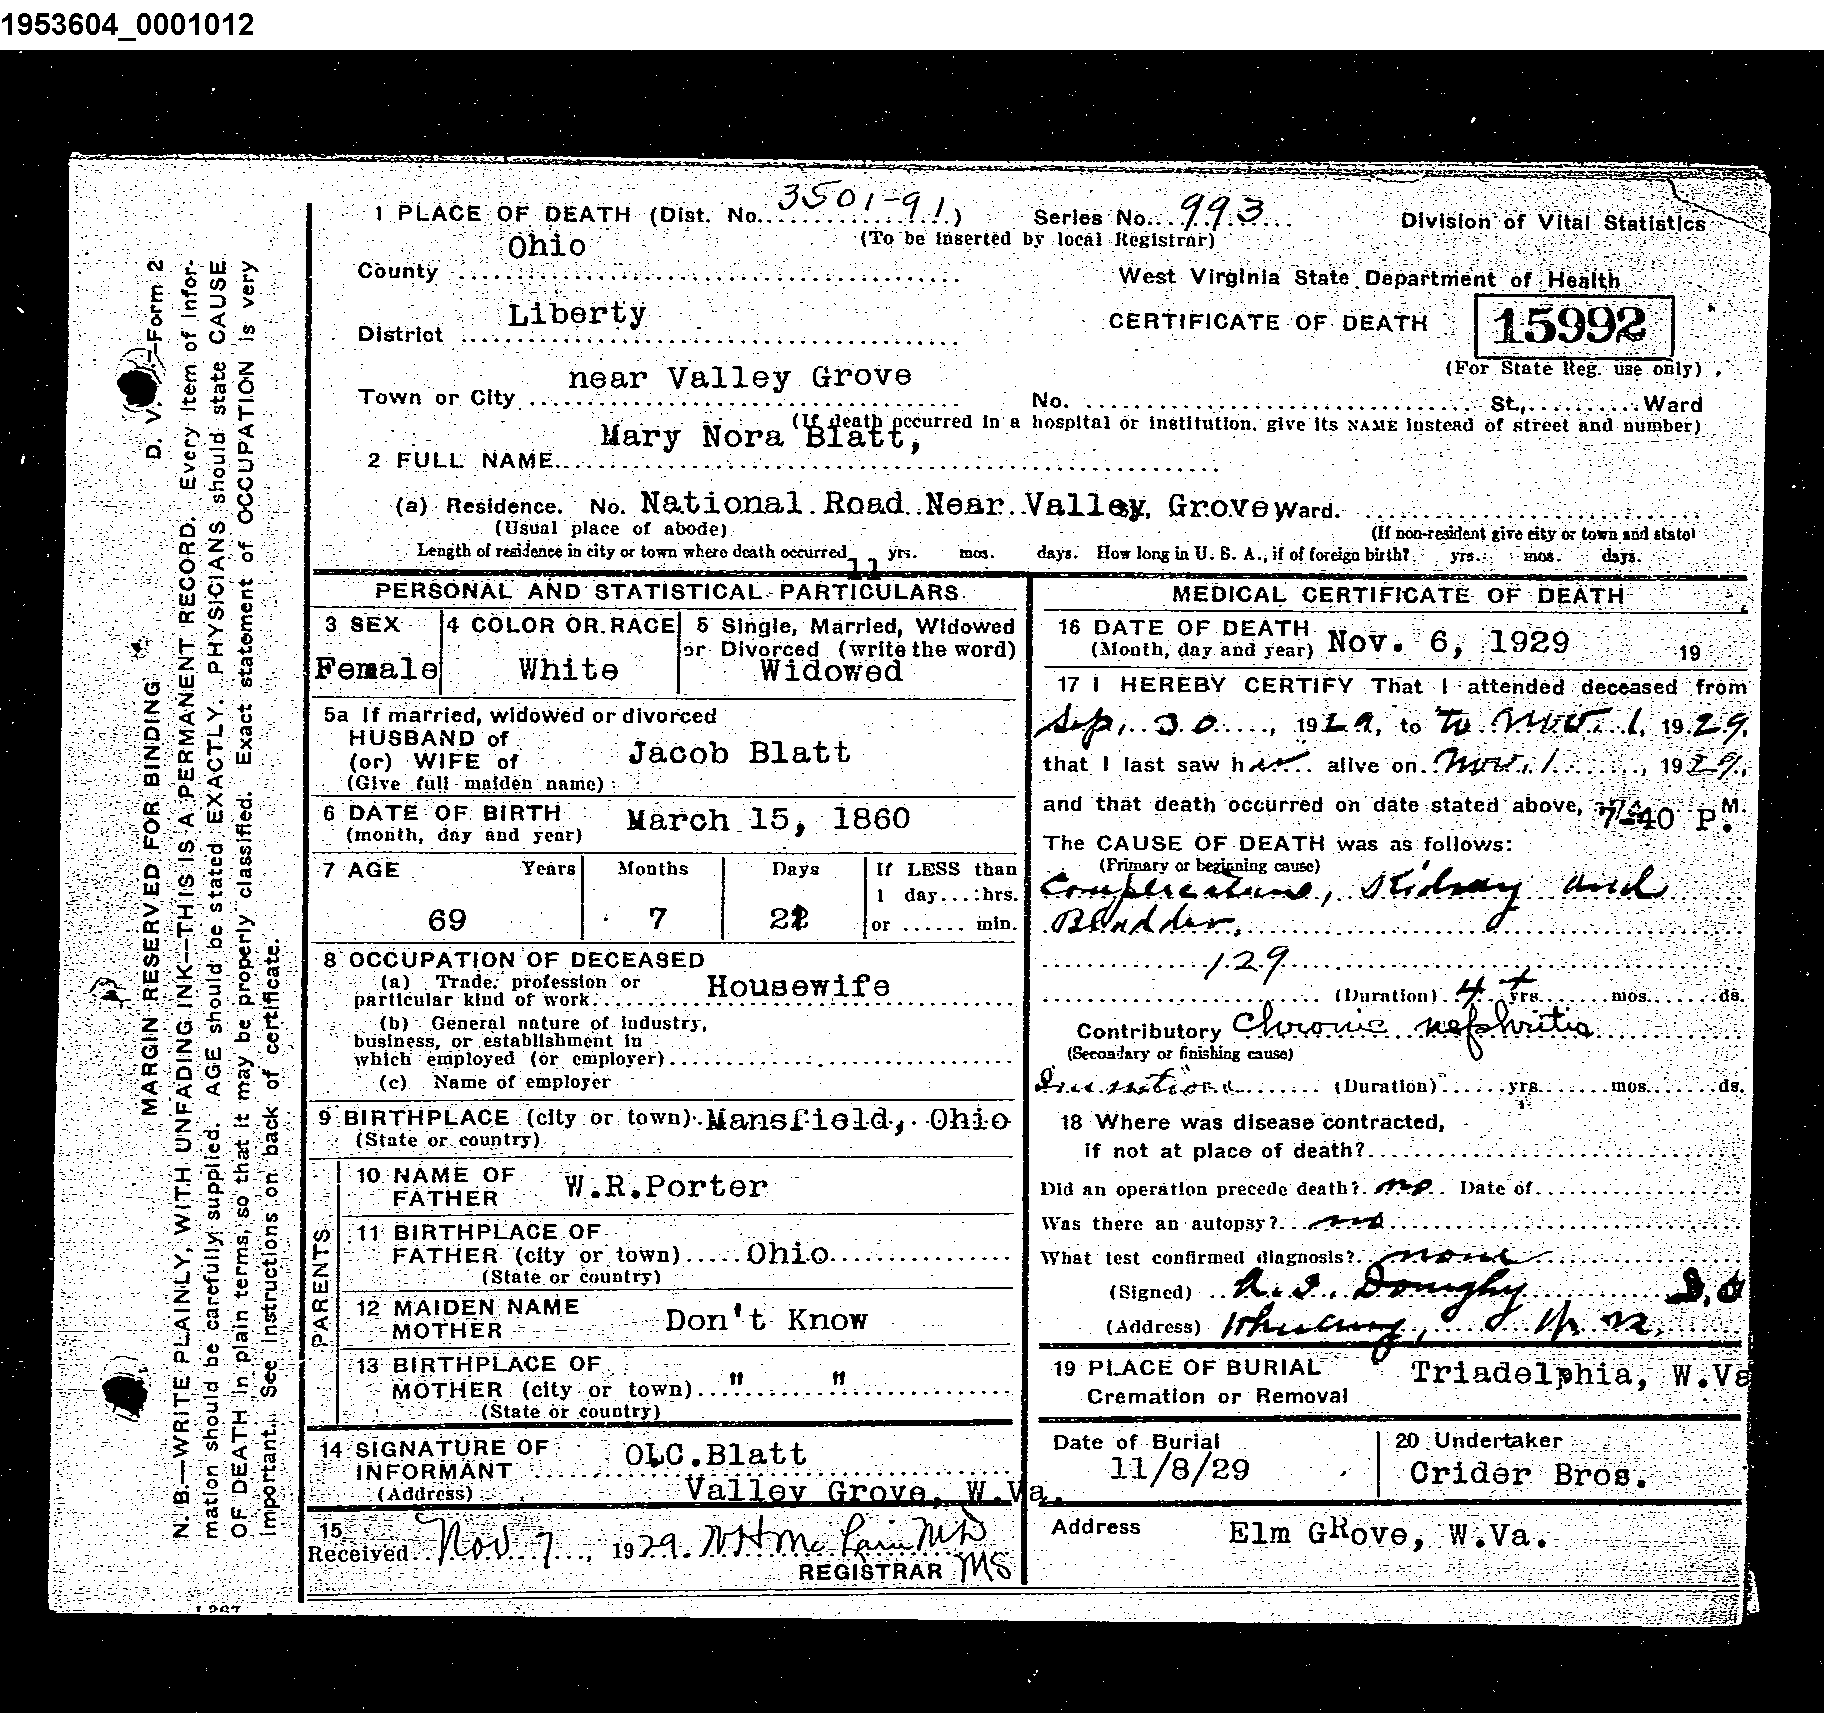 1953604_0001012
1 PLACE OF DEATH (Dist. No. 3501-91) Series No. 993 Division of Vital Statistics
(To be inserted by local Registrar)
County Ohio West Virginia State Department of Health
District Liberty CERTIFICATE OF DEATH 15992
(For State Reg. use only)
Town or City near Valley Grove No. St., Ward
(If death occurred in a hospital or institution, give its NAME instead of street and number)
2 FULL NAME Mary Nora Blatt,
(a) Residence. No. National Road Near Valley, Grove Ward.
(Usual place of abode) (If non-resident give city or town and state)
Length of residence in city or town where death occurred 11 yrs. mos. days. How long in U. S. A., if of foreign birth? yrs. mos. days.
PERSONAL AND STATISTICAL PARTICULARS
3 SEX Female
4 COLOR OR RACE White
5 Single, Married, Widowed
or Divorced (write the word)
Widowed
5a If married, widowed or divorced
HUSBAND of
(or) WIFE of Jacob Blatt
(Give full maiden name)
6 DATE OF BIRTH March 15, 1860
(month, day and year)
7 AGE Years Months Days If LESS than
1 day....hrs.
69 7 22 or ...... min.
8 OCCUPATION OF DECEASED
(a) Trade, profession or
particular kind of work Housewife
(b) General nature of industry,
business, or establishment in
which employed (or employer)
(c) Name of employer
9 BIRTHPLACE (city or town) Mansfield, Ohio
(State or country)
PARENTS
10 NAME OF
FATHER W.R.Porter
11 BIRTHPLACE OF
FATHER (city or town) Ohio
(State or country)
12 MAIDEN NAME
MOTHER Don't Know
13 BIRTHPLACE OF
MOTHER (city or town) " "
(State or country)
14 SIGNATURE OF
INFORMANT OLC.Blatt
(Address) Valley Grove, W.Va.
15
Received Nov 7, 1929. WHMcLain MD
REGISTRAR MS
MEDICAL CERTIFICATE OF DEATH
16 DATE OF DEATH Nov. 6, 1929 19
(Month, day and year)
17 I HEREBY CERTIFY That I attended deceased from
Sep. 30, 1929, to To Nov. 1, 1929.
that I last saw her alive on Nov. 1, 1929.
and that death occurred on date stated above, 7-40 P.M.
The CAUSE OF DEATH was as follows:
(Primary or beginning cause)
Complications, Kidney and
Bladder.
129
(Duration) 4+ yrs. mos. ds.
Contributory Chronic nephritis
(Secondary or finishing cause)
(Duration) yrs. mos. ds.
18 Where was disease contracted,
if not at place of death?
Did an operation precede death? no Date of
Was there an autopsy? no
What test confirmed diagnosis? none
(Signed)
(Address) Wheeling, W. Va.
19 PLACE OF BURIAL Triadelphia, W.Va
Cremation or Removal
Date of Burial
11/8/29
20 Undertaker
Crider Bros.
Address Elm GRove, W.Va.
D. V. —Form 2
MARGIN RESERVED FOR BINDING
N. B.—WRITE PLAINLY, WITH UNFADING INK—THIS IS A PERMANENT RECORD. Every item of infor-
mation should be carefully supplied. AGE should be stated EXACTLY. PHYSICIANS should state CAUSE
OF DEATH in plain terms, so that it may be properly classified. Exact statement of OCCUPATION is very
important. See instructions on back of certificate.